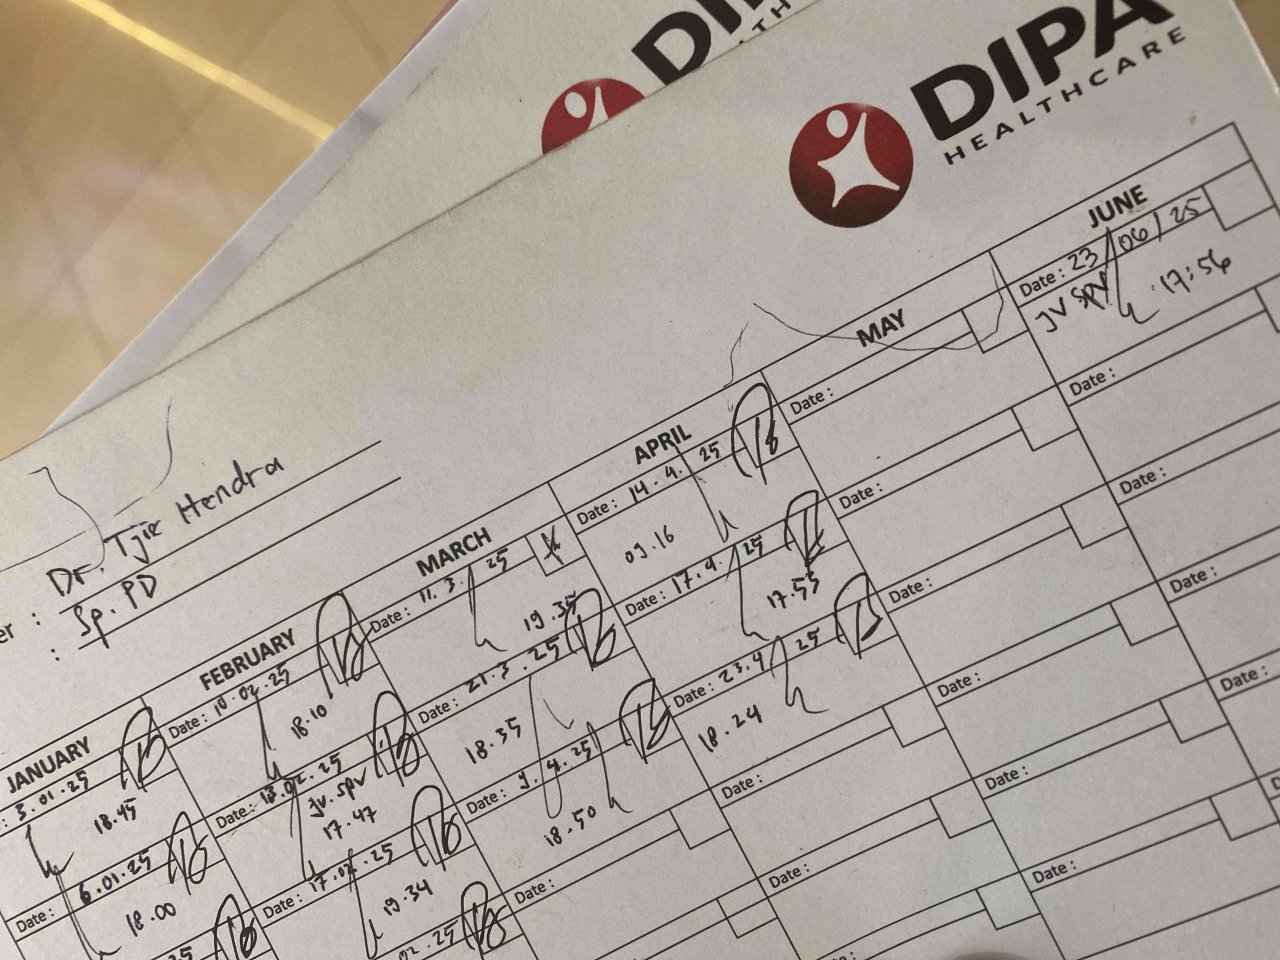 DIPA
HEALTHCARE
er : Dr. Tjie Hendra
: Sp. PD
JANUARY
: 3.01.25
18.45
Date : 6.01.25
18.00
25
FEBRUARY
Date : 10.02.25
18.10
Date : 13.02.25
JV. SPV
17.47
Date : 17.02.25
19.34
02.25
MARCH
Date : 11.3. 25
19.35
Date : 21.3.25
18.35
Date : 9.4.25
18.50
Date :
APRIL
Date : 14.4. 25
09.16
Date : 17.4. 25
17.55
Date : 23.4 25
18.24
Date :
Date :
MAY
Date :
Date :
Date :
Date :
Date :
Date :
JUNE
Date : 23/06/25
JV SPV 17:56
Date :
Date :
Date :
Date :